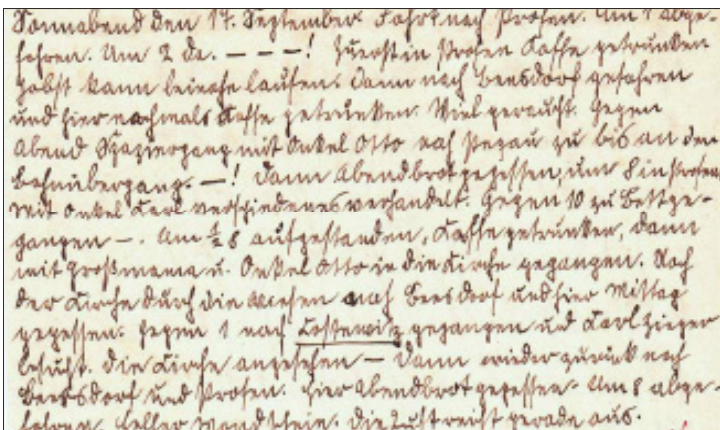 Sonnabend den 17. September. Fahrt nach Profen. Um 1 abge-
fahren. Um 2 da. – – – –! Zuerst in Profen Kaffe getrunken
Jobst kann beinahe laufen. Dann nach Beersdorf gefahren
und hier nochmals Kaffe getrunken. Viel geraucht. Gegen
Abend Spaziergang mit Onkel Otto nach Pegau zu bis an den
Bahnübergang. –! Dann Abendbrot gegessen, um 8 in Profen
mit Onkel Karl verschiedenes verhandelt. Gegen 10 zu Bett ge-
gangen –. Um ½ 8 aufgestanden, Kaffe getrunken, dann
mit Großmama u. Onkel Otto in die Kirche gegangen. Nach
der Kirche durch die Wiesen nach Beersdorf und hier Mittag
gegessen. Gegen 1 nach Costewitz gegangen und Karl Zieger
besucht. Die Kirche angesehen – dann wieder zurück nach
Beersdorf und Profen. Hier Abendbrot gegessen. Um 8 abge-
fahren. Heller Mondschein. Die Luft reicht gerade aus.